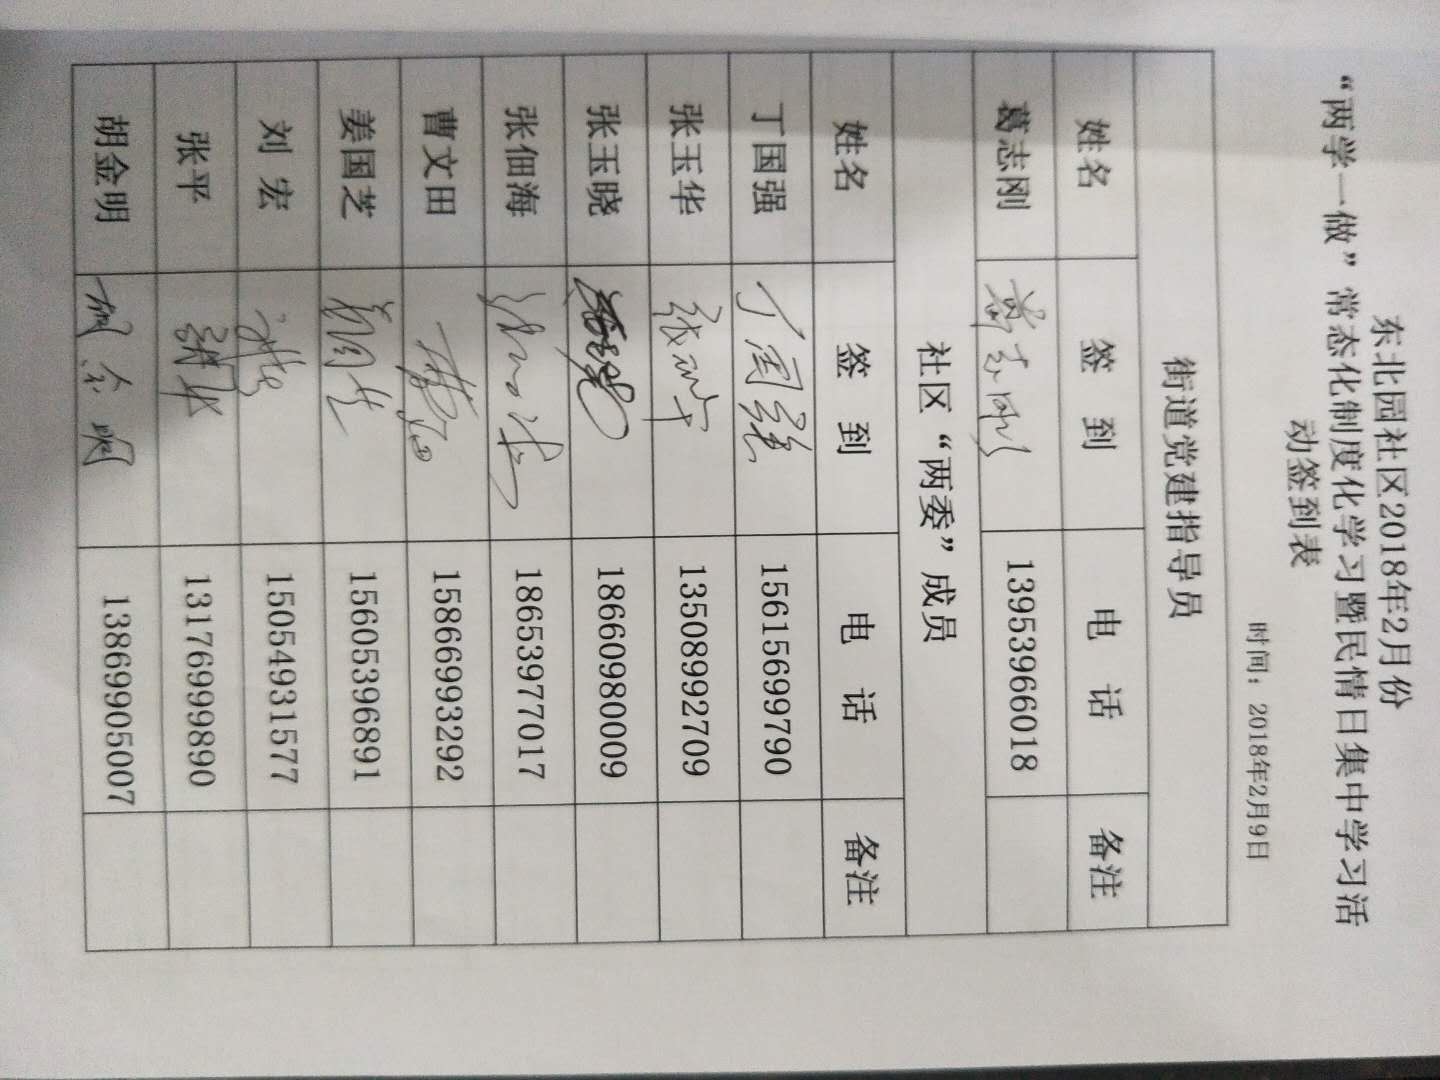 东北园社区2018年2月份
“两学一做”常态化制度化学习暨民情日集中学习活
动签到表
时间：2018年2月9日
街道党建指导员
姓名 签 到 电 话 备注
葛志刚 葛志刚 13953966018
社区“两委”成员
姓名 签 到 电 话 备注
丁国强 丁国强 15615699790
张玉华 张玉华 13508992709
张玉晓 张玉晓 18660980009
张佃海 张佃海 18653977017
曹文田 曹文田 15866993292
姜国芝 姜国芝 15605396891
刘 宏 刘宏 15054931577
张平 张平 13176999890
胡金明 胡金明 13869905007